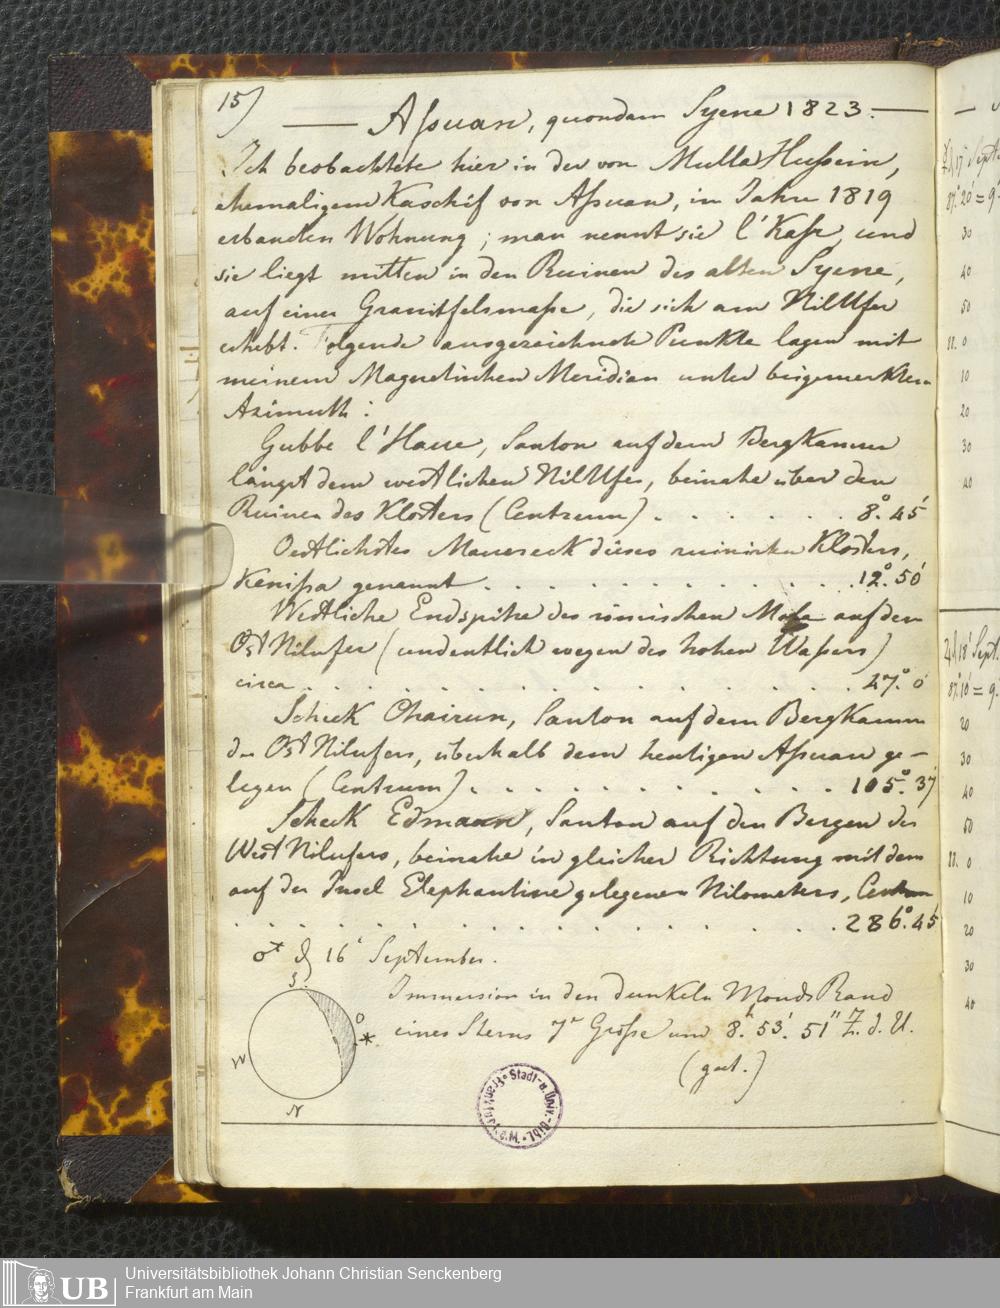 15)
Assuan, quondam Syene 1823.
Ich beobachtete hier in der von Mulla Hussein,
ehemaligem Kaschéf von Assuan, im Jahre 1819
erbauten Wohnung; man nennt sie l'Kasr, und
sie liegt mitten in den Ruinen des alten Syene,
auf einer Granitfelsmasse, die sich am NilUfer
erhebt. Folgende ausgezeichnete Punkte lagen mit
meinem Magnetischen Meridian unter beigemerktem
Azimuth:
Gubbe l'Haue, Santon auf dem BergKamm
längst dem westlichen NilUfer, beinahe über den
Ruinen des Klosters (Centrum) . . . . . . . 8°. 45'
Oestlichstes Mauereck dieses ruinirten Klosters,
Kenissa genannt . . . . . . . . . . . . . . 12°. 50'
Westliche Endspitze des römischen auf dem
Ost Nilufer (undeutlich wegen des hohen Wassers)
circa . . . . . . . . . . . . . . . . . . 27°. 0'
Scheck Chairun, Santon auf dem BergKamm
des Ost Nilufers, überhalb dem heutigen Assuan ge-
legen (Centrum) . . . . . . . . . . . . . 105°. 37'
Scheck Edmaan, Santon auf den Bergen des
West Nilufers, beinahe in gleicher Richtung mit dem
auf der Insel Elephantine gelegenen Nilometers, Centrum
. . . . . . . . . . . . . . . . . . 286°. 45'
♂ d 16' September.
S.
Immersion in den dunkeln Monds Rand
O
* eines Sterns 7r Größe um 8h. 53'. 51" 7/Z. d. U.
W
(gut.)
N
Stadt- u. Univ.-Bibl. Frankfurt
17' Sept.
87°. 20' = 9.
30
40
50
11. 0
10
20
30
40
18' Sept.
87°. 10' = 9.
20
30
40
50
11. 0
10
20
30
40
UB
Universitätsbibliothek Johann Christian Senckenberg
Frankfurt am Main